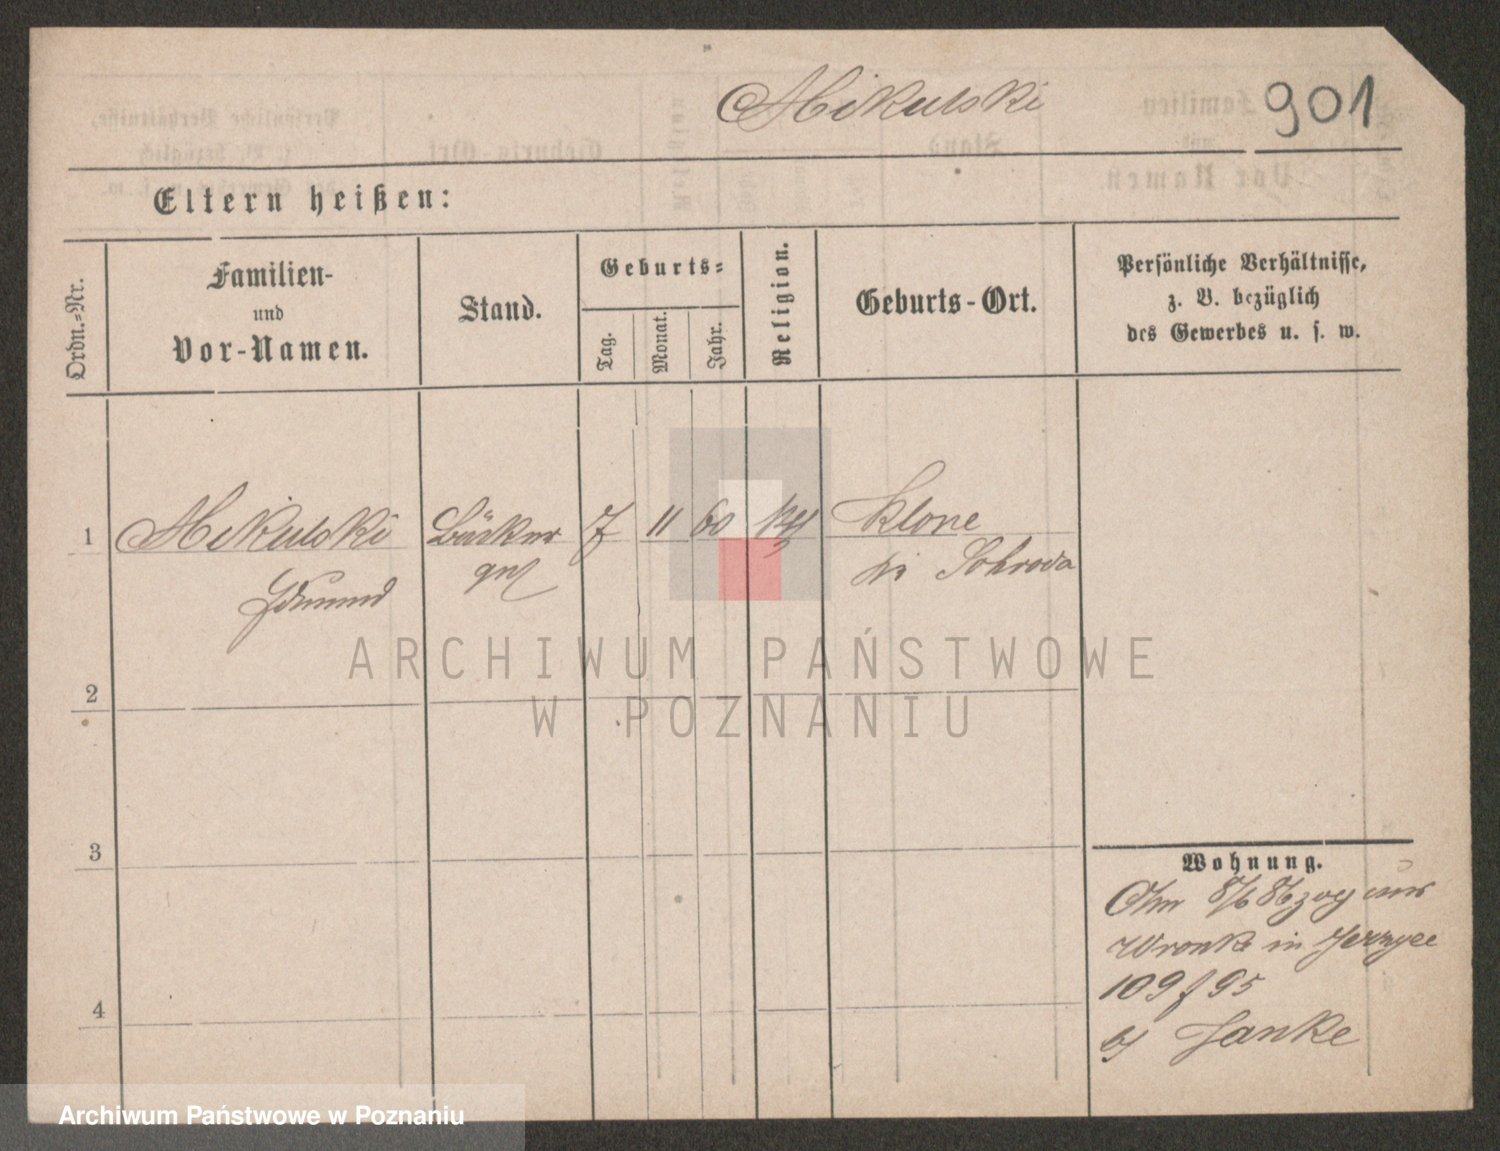 Mikulski 901
Eltern heißen:
Ordn.-Nr.
Familien-
und
Vor-Namen.
Stand.
Geburts-
Tag.
Monat.
Jahr.
Religion.
Geburts-Ort.
Persönliche Verhältnisse,
z. B. bezüglich
des Gewerbes u. s. w.
1 Mikulski Bäcker 7 11 60 kth Klone
Edmund ges Schroda
2
3
4
Wohnung.
Am 8/6 86 zog aus
Wronke in Jerzyce
109 f 95
bj Janke
ARCHIWUM PAŃSTWOWE
W POZNANIU
Archiwum Państwowe w Poznaniu